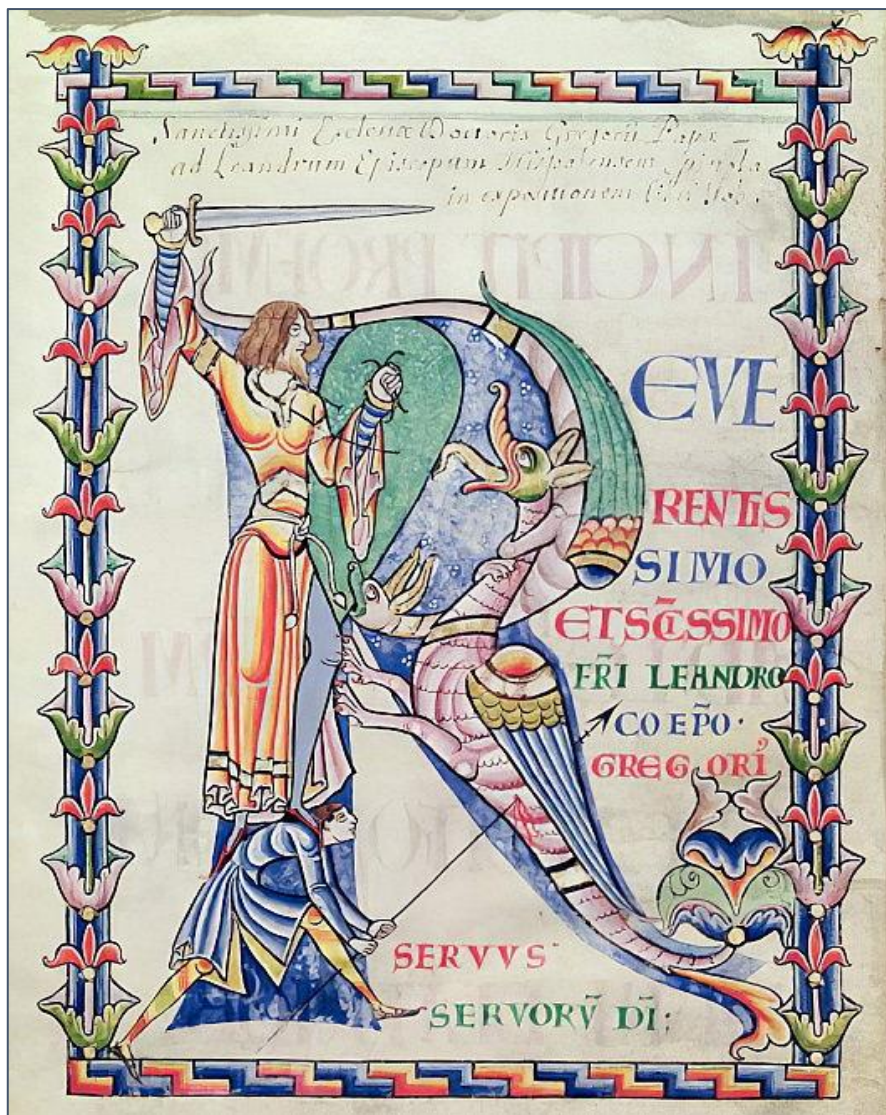 Sanctissimi Ecclesiæ Doctoris Gregorii Papæ
ad Leandrum Episcopum Hispalensem
in expositionem
REVE
RENTIS
SIMO
ET SC̄ISSIMO
FR̄I LEANDRO
COEP̄O·
GREGORI᾿
SERVVS
SERVORV̄ DĪ: